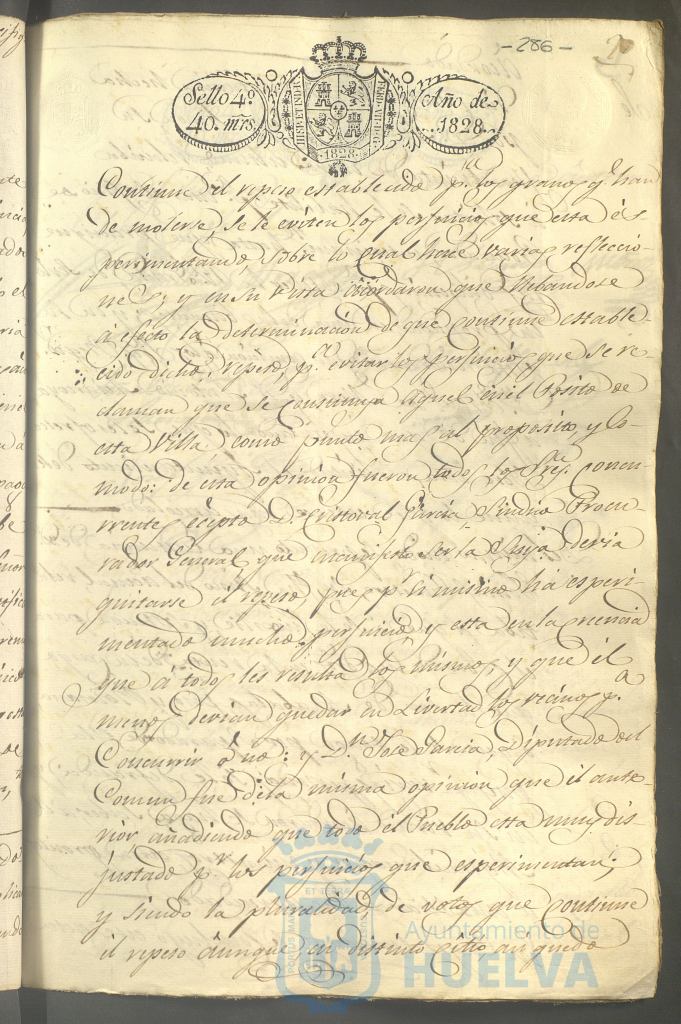 - 286 -
Sello 4º
40. mrs
HISP. ET IND. R.
FERD. VII. D. G.
1828
Año de
1828.
Continue el repeso establecido pª. los granos q. han
de molerse, se le eviten los perjuicios que esta és
perimentando, sobre lo qual hace varias refleccio-
nes; y en su vista acordaron que llebandose
á efecto la determinación de que continue estable-
cido dicho repeso, pª evitar los perjuicios que se re-
claman que se construya aquel en el Posito de
esta Villa como punto mas al proposito, y co-
modo: de esta opinion fueron todos los Sres. concu-
rrentes, ecepto Dn. Cristoval Garcia Sindico Procu-
rador General, que manifestó ser la suya devia
quitarse el repeso, pues pr. si mismo ha esperi-
mentado mucho perjuicio y esta en la creencia
que á todos les resulta lo mismo, y que él
menos devian quedar en Livertad los vecinos pª.
Concurrir ó no: y Dn. José Garcia, Diputado del
Comun fue de la misma opinion que el ante-
rior, añadiendo que todo el Pueblo esta muy dis
justado pr. los perjuicios que esperimentan;
y siendo la pluralidad de votos que continue
el repeso aunque en distinto sitio, aun quedo
Ayuntamiento de
HUELVA